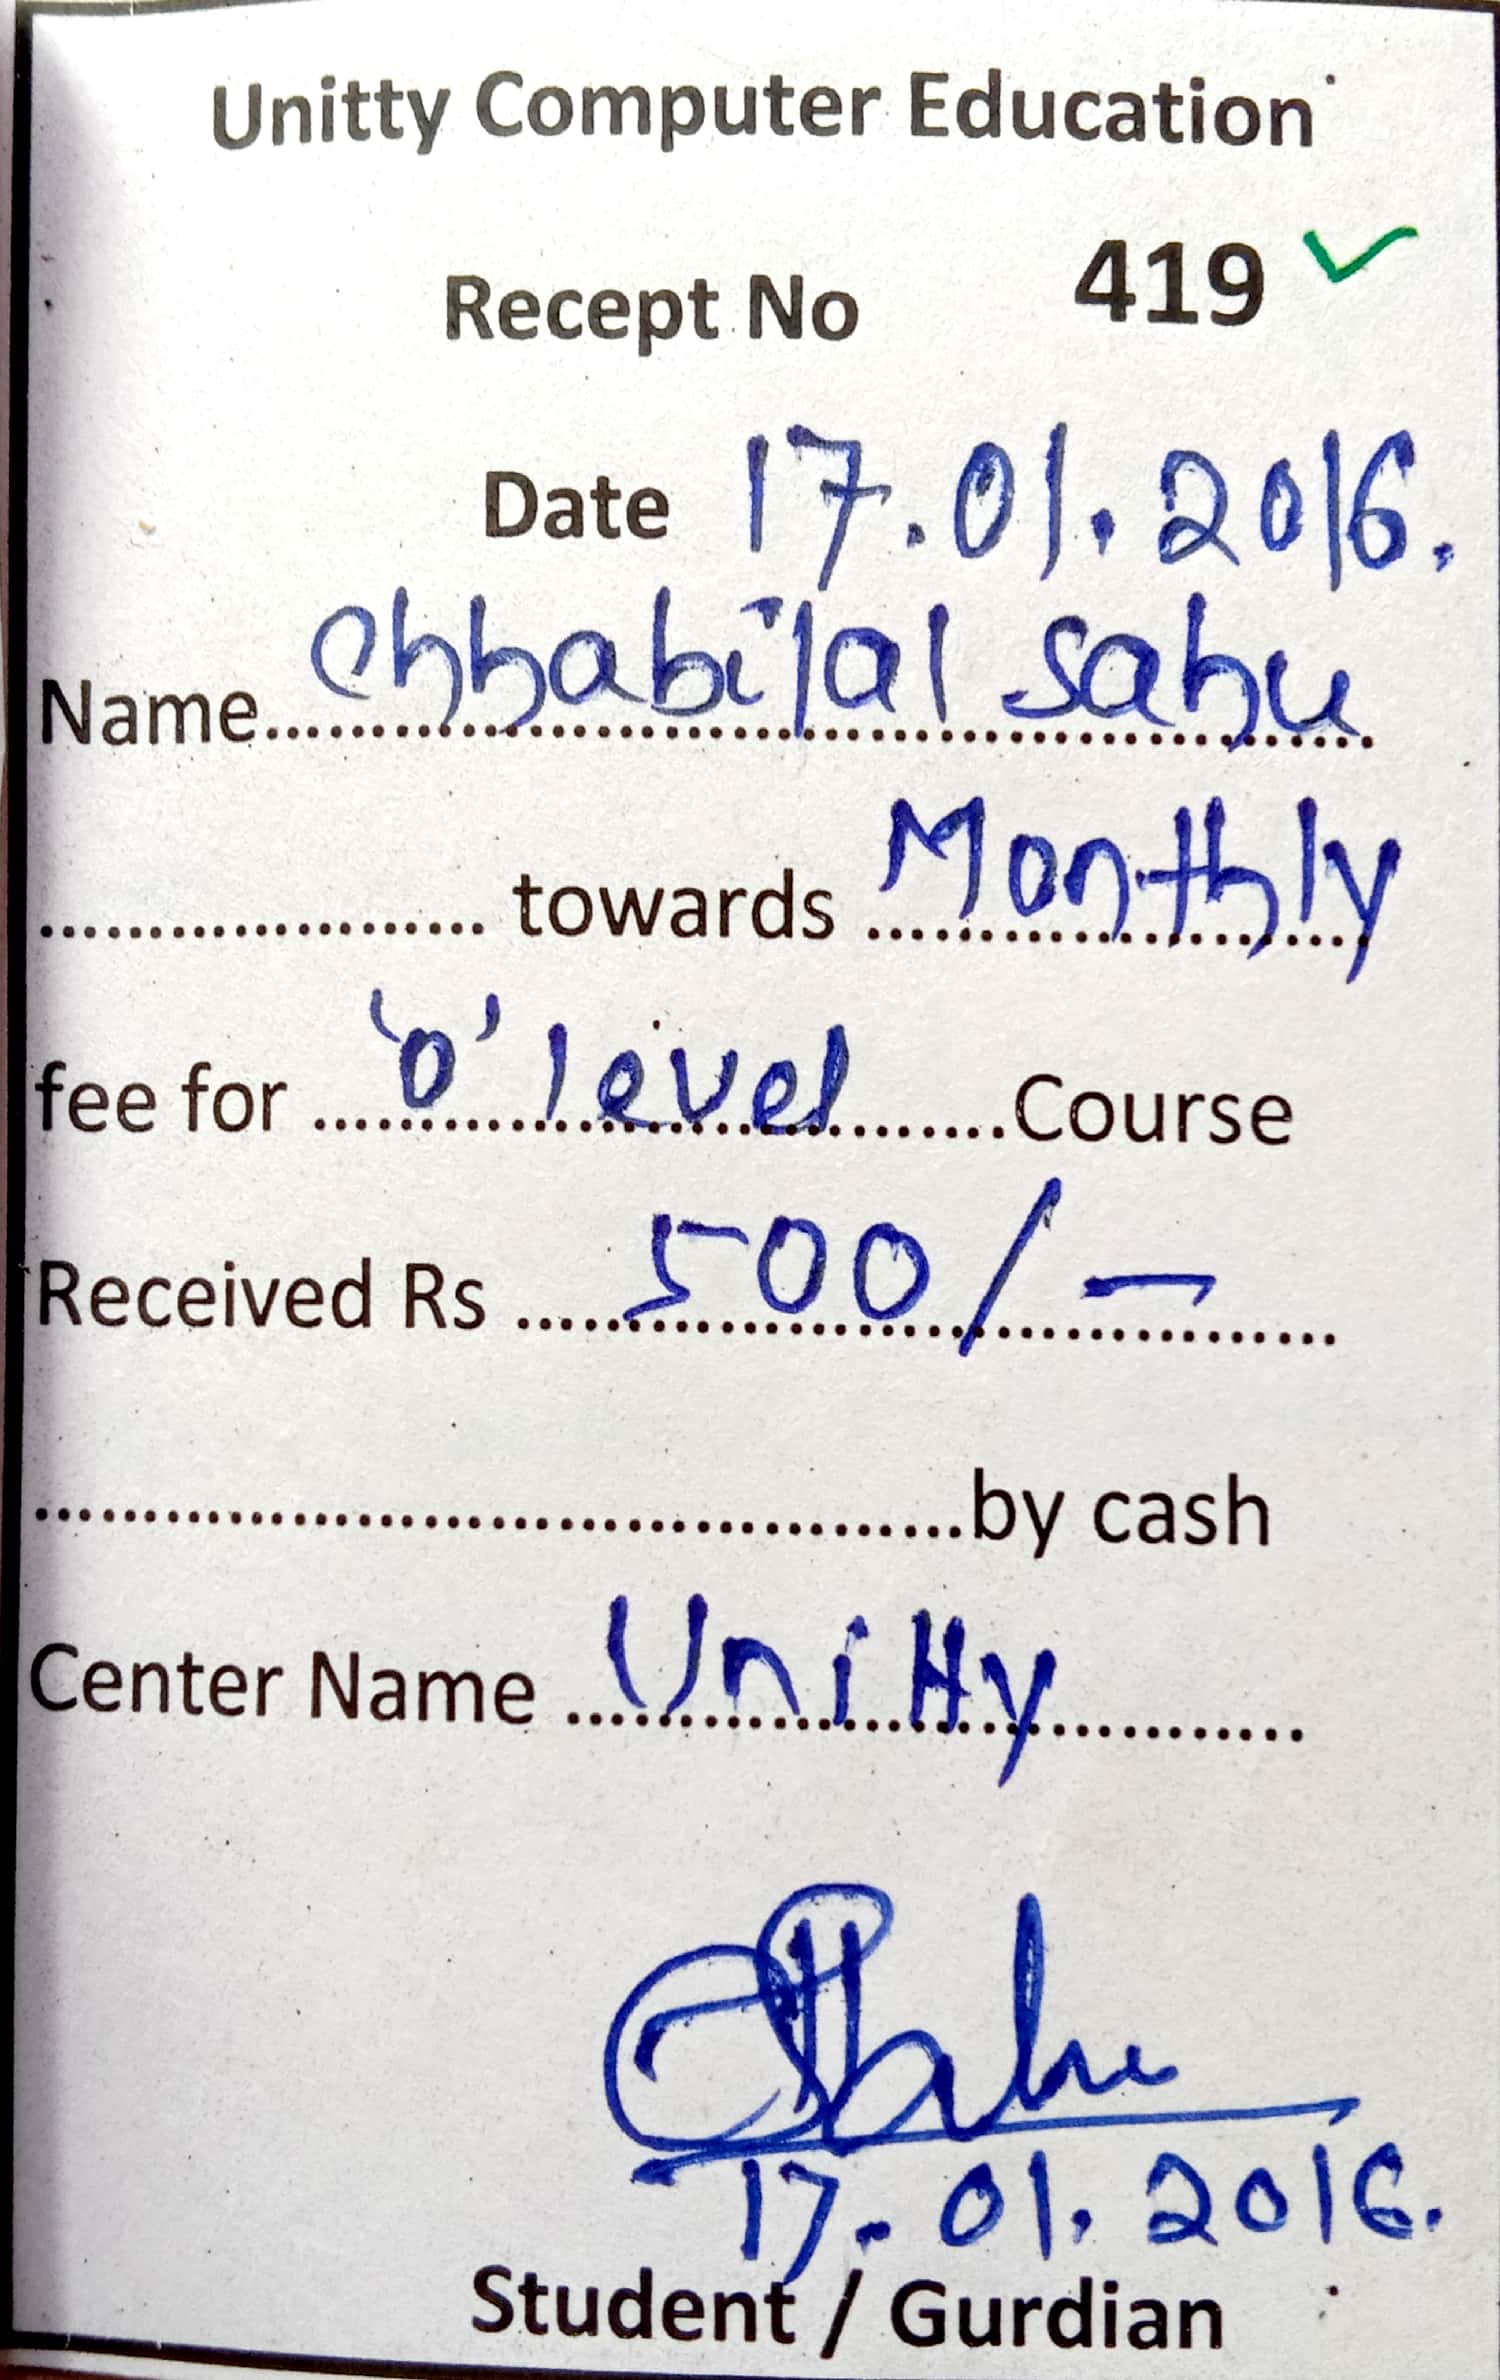 Unitty Computer Education
Recept No 419
Date 17.01.2016.
Name........ Chhabilal Sahu
.................... towards Monthly
fee for ........ 'O' level ........Course
Received Rs ..... 500/-
........................................by cash
Center Name ...... Unitty
17.01.2016.
Student / Gurdian